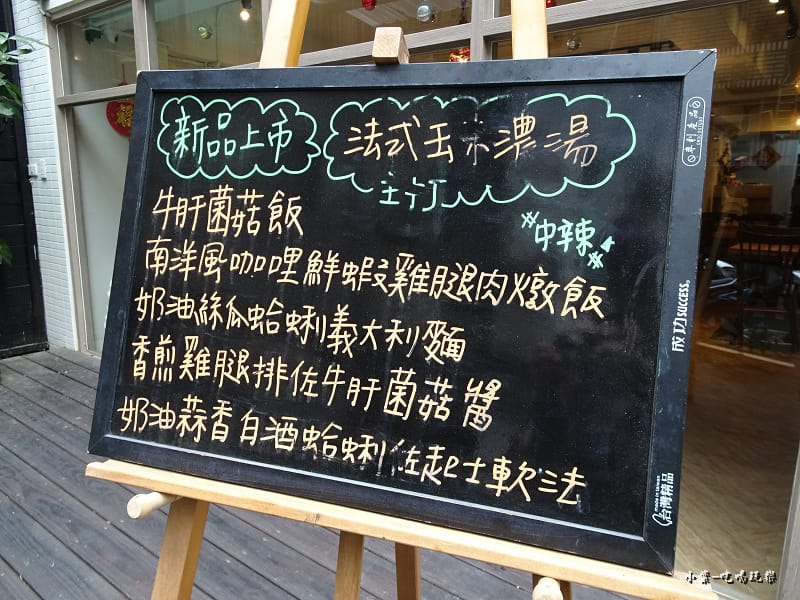 新品上市
法式玉米濃湯
主打
牛肝菌菇飯
中辣
南洋風咖哩鮮蝦雞腿肉燉飯
奶油絲瓜蛤蜊義大利麵
香煎雞腿排佐牛肝菌菇醬
奶油蒜香白酒蛤蜊佐起士軟法
專利產品
成功 SUCCESS
made in taiwan
台灣精品
小紫-吃喝玩樂